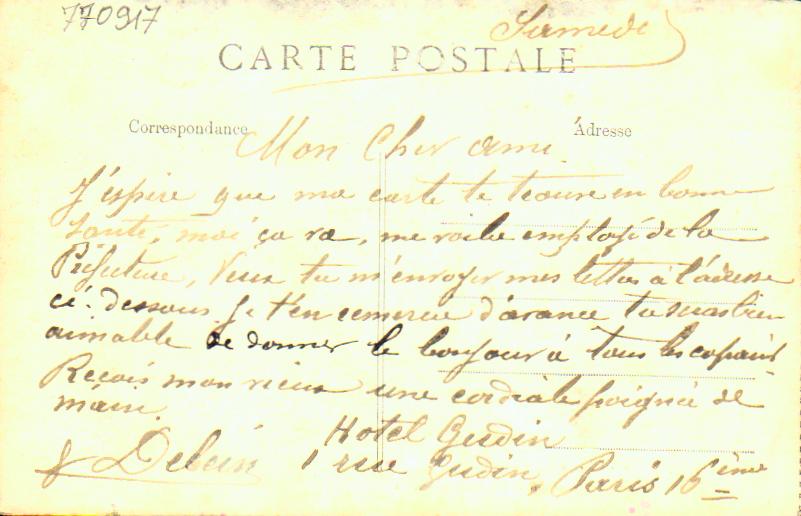 770917
Samedi
CARTE POSTALE
Correspondance
Adresse
Mon Cher ami
J'espère que ma carte te trouve en bonne
santé, moi ça va, me voila employé de la
Préfecture, Veux tu m'envoyer mes lettres à l'adresse
ci-dessous je t'en remercie d'avance tu seras bien
aimable de donner le bonjour à tous les copains
Reçois mon vieux une cordiale poignée de
main
Hotel Gudin
1 rue Gudin, Paris 16 ème